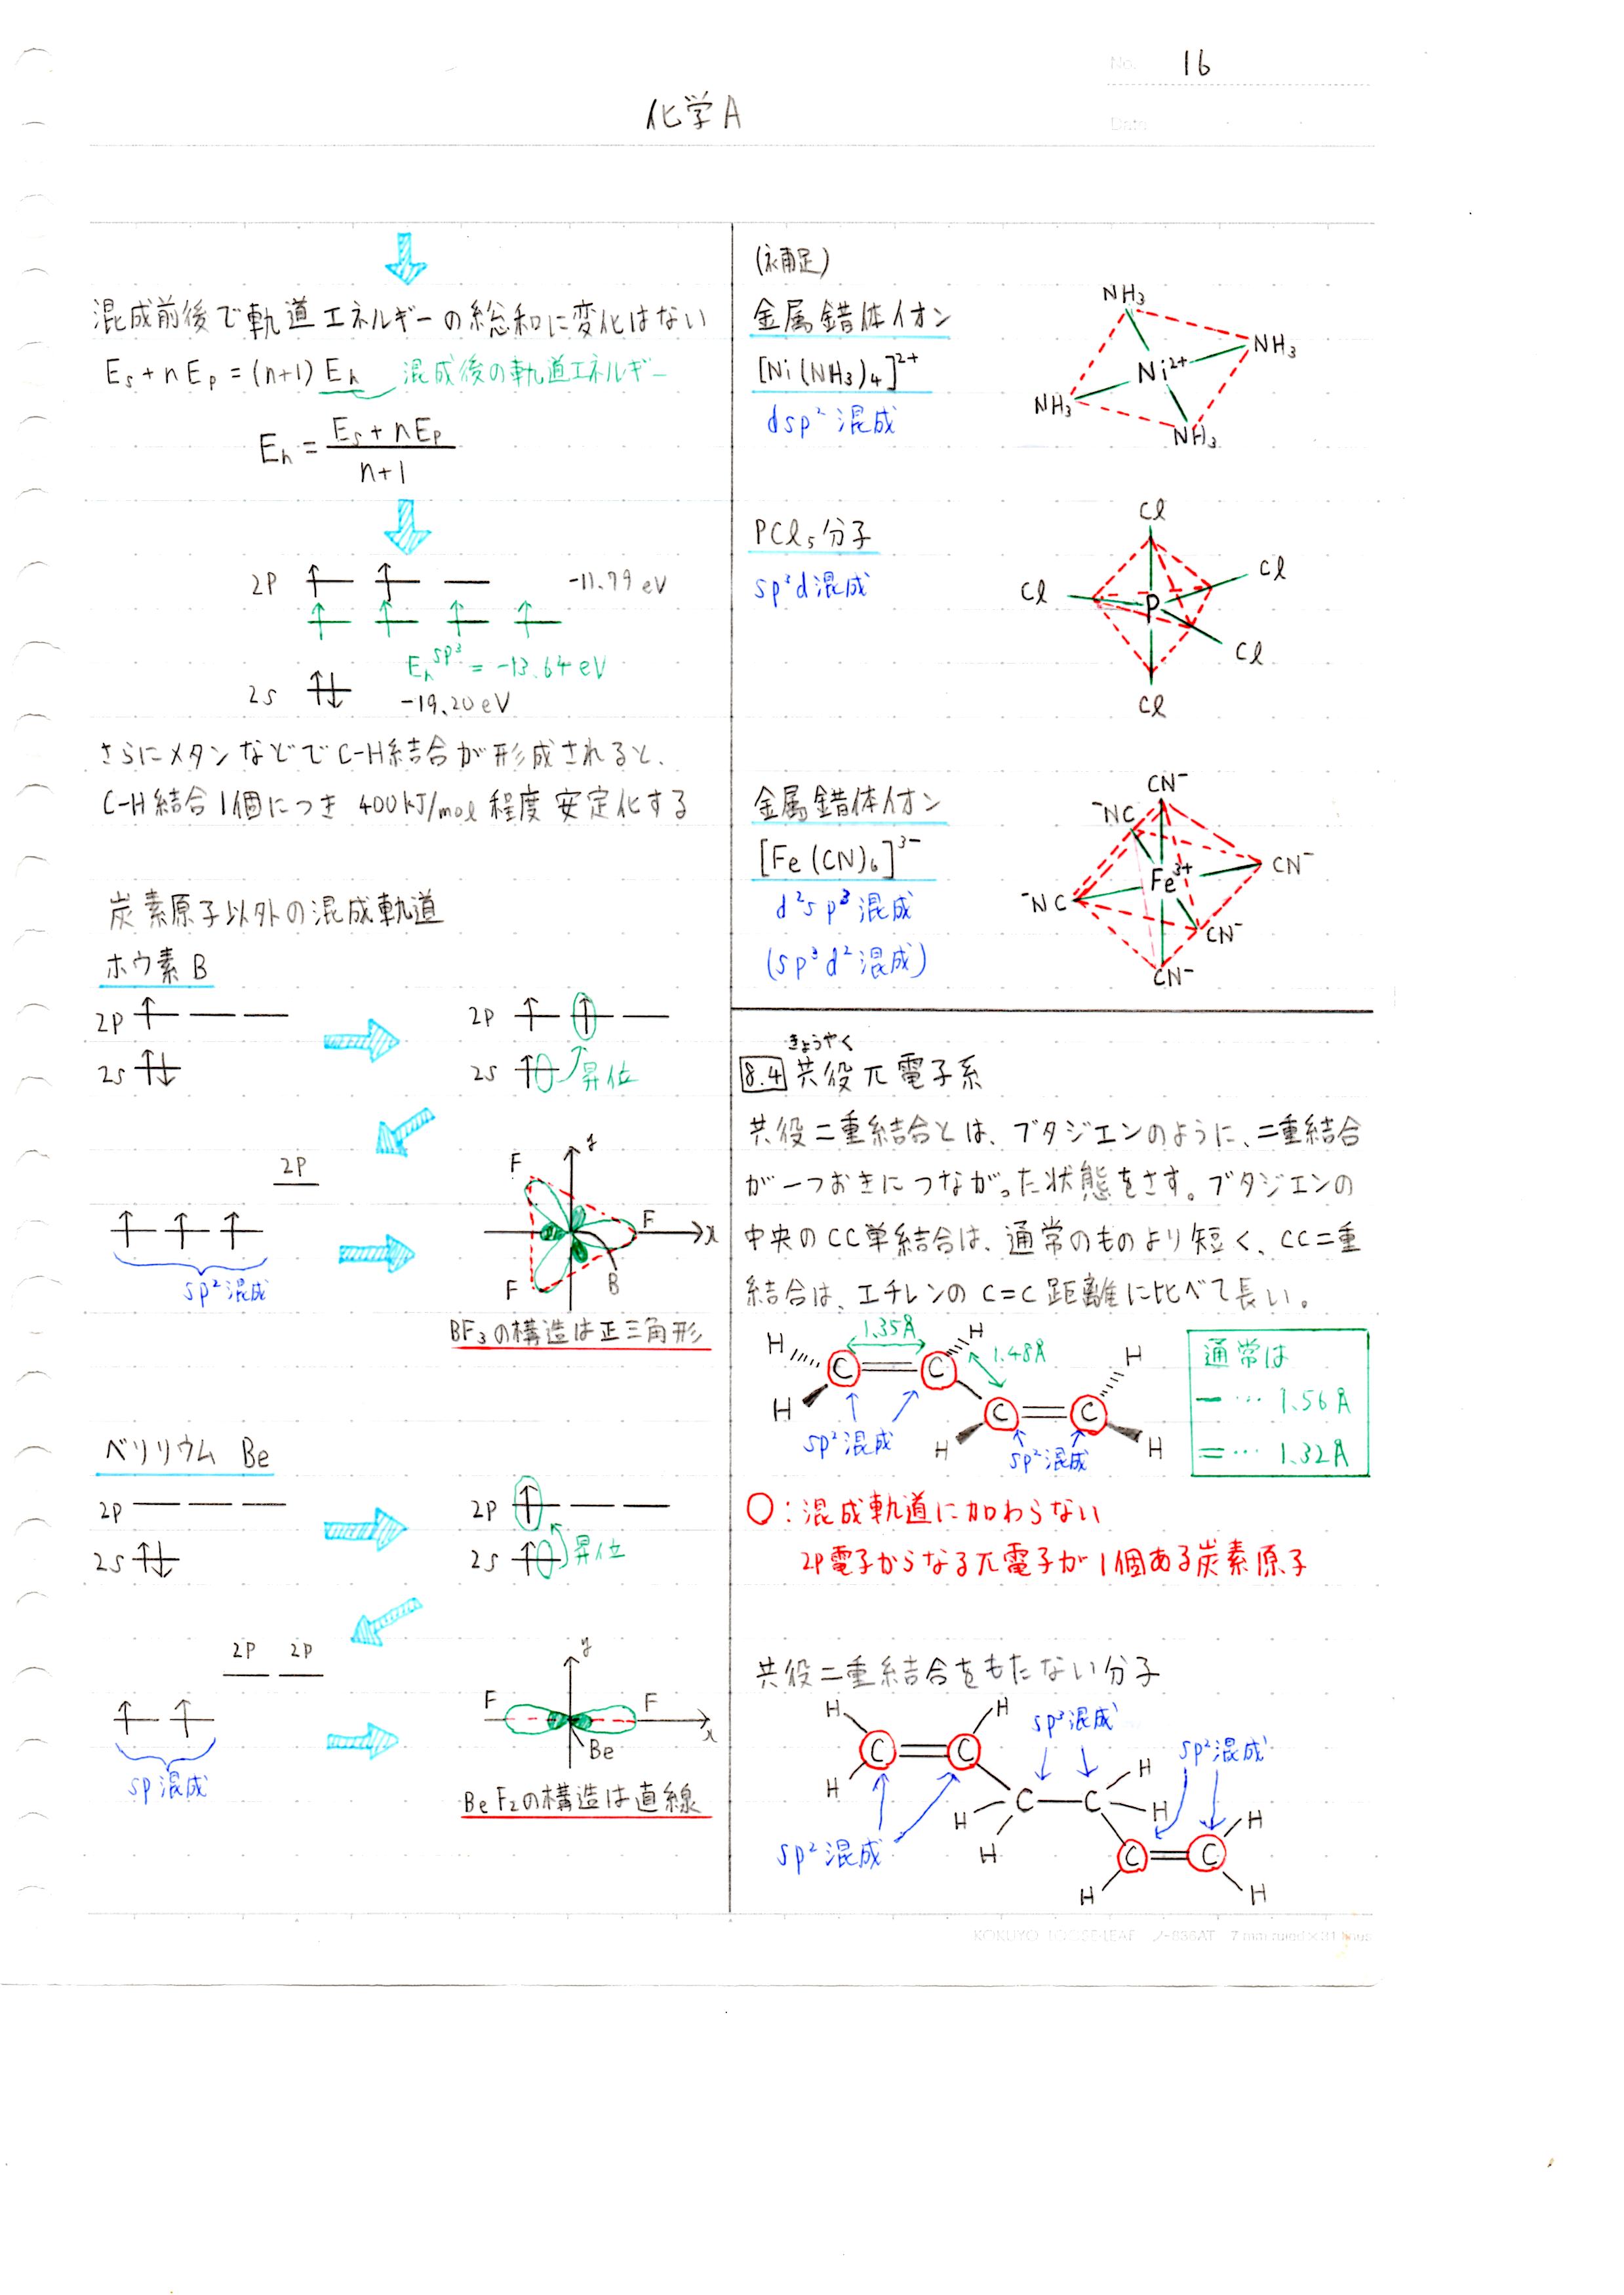 No. 16
化学A
Date
混成前後で軌道エネルギーの総和に変化はない
Es + nEp = (n+1) Eh 混成後の軌道エネルギー
Eh = (Es + nEp)/(n+1)
2P -11.79 eV
Eh^sp³ = -13.64 eV
2s -19.20 eV
さらにメタンなどでC-H結合が形成されると、
C-H結合1個につき 400kJ/mol 程度 安定化する
炭素原子以外の混成軌道
ホウ素 B
2P 2P
2s 2s 昇位
2P
sp²混成
y
F
F
x
F
B
BF₃の構造は正三角形
ベリリウム Be
2P 2P
2s 2s 昇位
2P 2P
sp混成
y
F F
x
Be
BeF₂の構造は直線
(補足)
金属錯体イオン
[Ni(NH₃)₄]²⁺
dsp²混成
NH₃
NH₃
Ni²⁺
NH₃
NH₃
PCl₅分子
sp³d混成
Cl
Cl
Cl
P
Cl
Cl
金属錯体イオン
[Fe(CN)₆]³⁻
d²sp³混成
(sp³d²混成)
CN⁻
⁻NC
CN⁻
Fe³⁺
⁻NC
CN⁻
CN⁻
きょうやく
8.4 共役π電子系
共役二重結合とは、ブタジエンのように、二重結合
が一つおきにつながった状態をさす。ブタジエンの
中央のCC単結合は、通常のものより短く、CC二重
結合は、エチレンの C=C 距離に比べて長い。
1.35Å
H C C H
1.48Å
H
H
C C
H H
sp²混成
sp²混成
通常は
— … 1.56Å
= … 1.32Å
○:混成軌道に加わらない
2P電子からなるπ電子が1個ある炭素原子
共役二重結合をもたない分子
H H
sp³混成
C C
sp²混成
H
H
C C
H H
H
sp²混成
H
C C
H H
KOKUYO LOOSE-LEAF ノ-836AT 7 mm ruled×31 lines